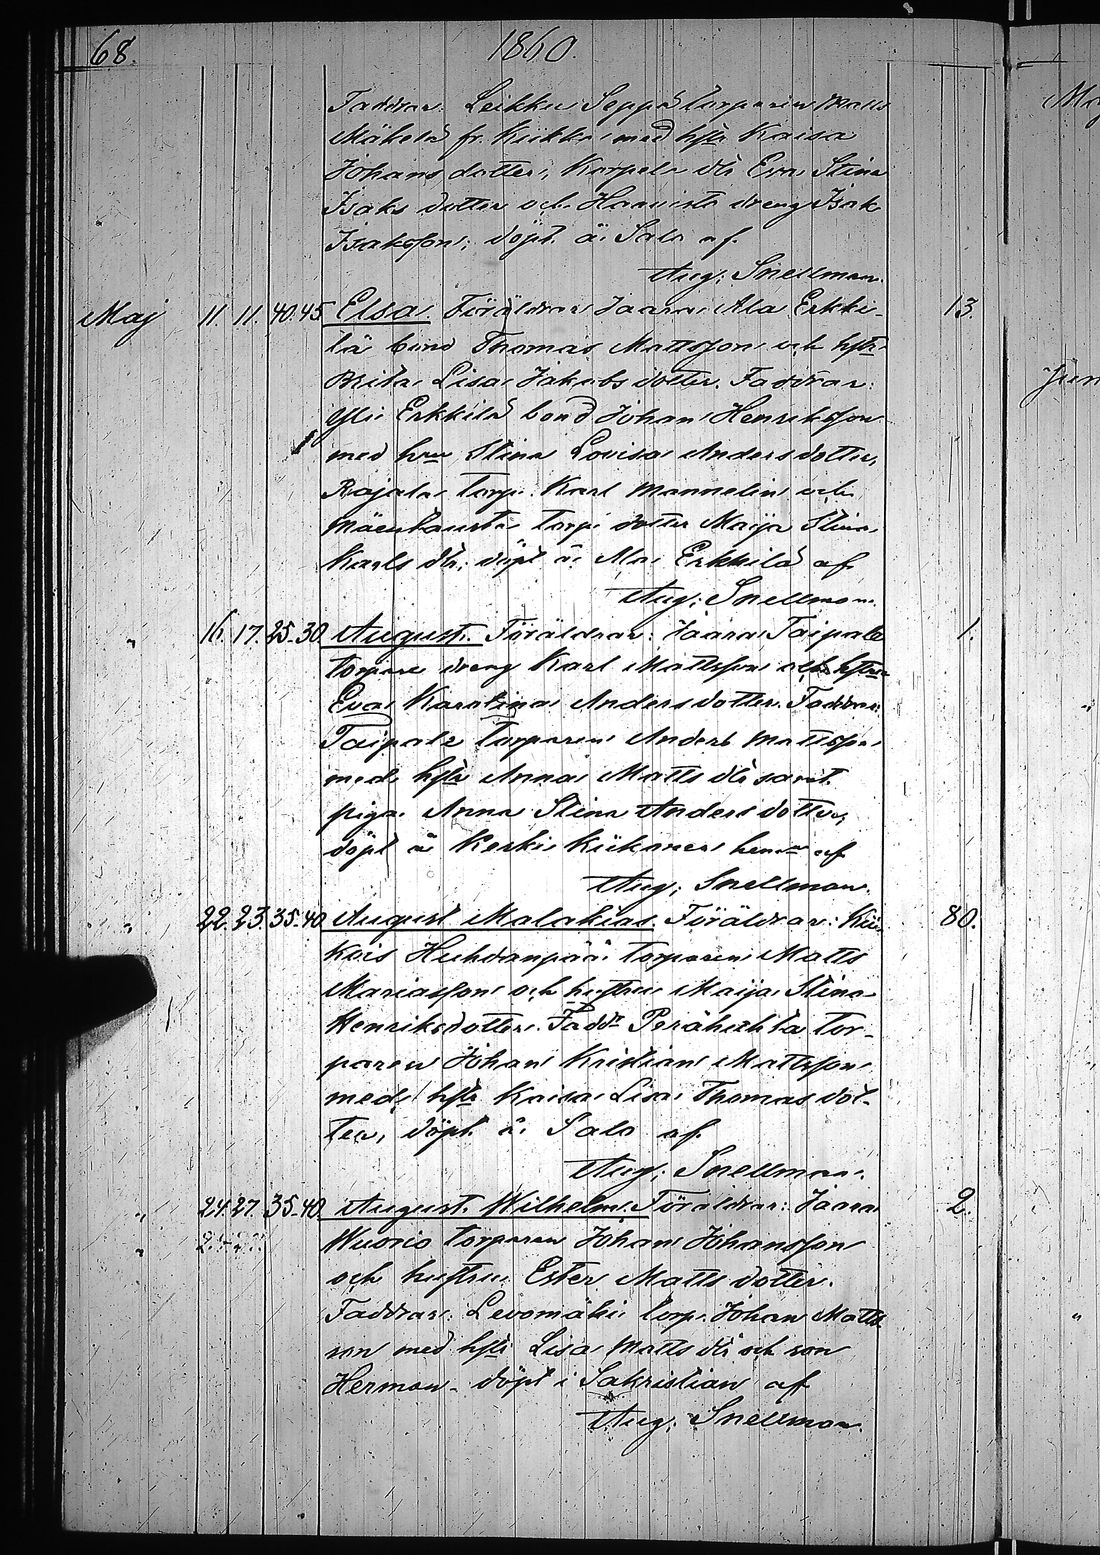 68.
1860.
Faddrar. Leikku Seppä torparen Matts
Mäkelä fr. Kiikka med hstr Kaisa
Johans dotter, Korpela dtr Eva Stina
Isaks dotter och dreng Isak
Isaksson; döpt å Salo af
Aug: Snellman.
Maj 11. 11. 40.45 Elsa. Föräldrar Jaara Ala Erkki- 13.
lä bond Thomas Mattsson och hstr
Brita Lisa Jakobs dotter. Faddrar:
Yli Erkkilä bond Johan Henriksson
med hru Stina Lovisa Anders dotter,
Rajala torp. Karl Mannelin och
torp. dotter Maija Stina
Karls dtr; döpt å Ala Erkkilä af
Aug: Snellman.
" 16. 17. 25-30. August. Föräldrar: Jaara Taipale 1.
torpare dreng Karl Mattsson och hstru
Eva Karolina Anders dotter. Faddrar:
Taipale torparen Anders Mattsson
med hstr Anna Matts dtr samt
piga Anna Stina Anders dotter,
döpt å Keski Kiikanen hemn af
Aug: Snellman.
" 22. 23. 35-40. August Malakias. Föräldrar: Kii- 80.
kois Huhdanpää torparen Matts
Mariasson och hustru Maija Stina
Henriksdotter. Fadd: Perähuhta tor-
paren Johan Kristian Mattsson
med hstr Kaisa Lisa Thomas dot-
ter, döpt å Salo af
Aug: Snellman.
" 24. 27. 35-40. August Wilhelm. Föräldrar: Jaara 2.
" Wuorio torparen Johan Johansson
och hustru Ester Matts dotter.
Faddrar: Levomäki torp. Johan Matts
son med hstr Lisa Matts dtr och son
Herman. döpt i Sakristian af
Aug: Snellman.